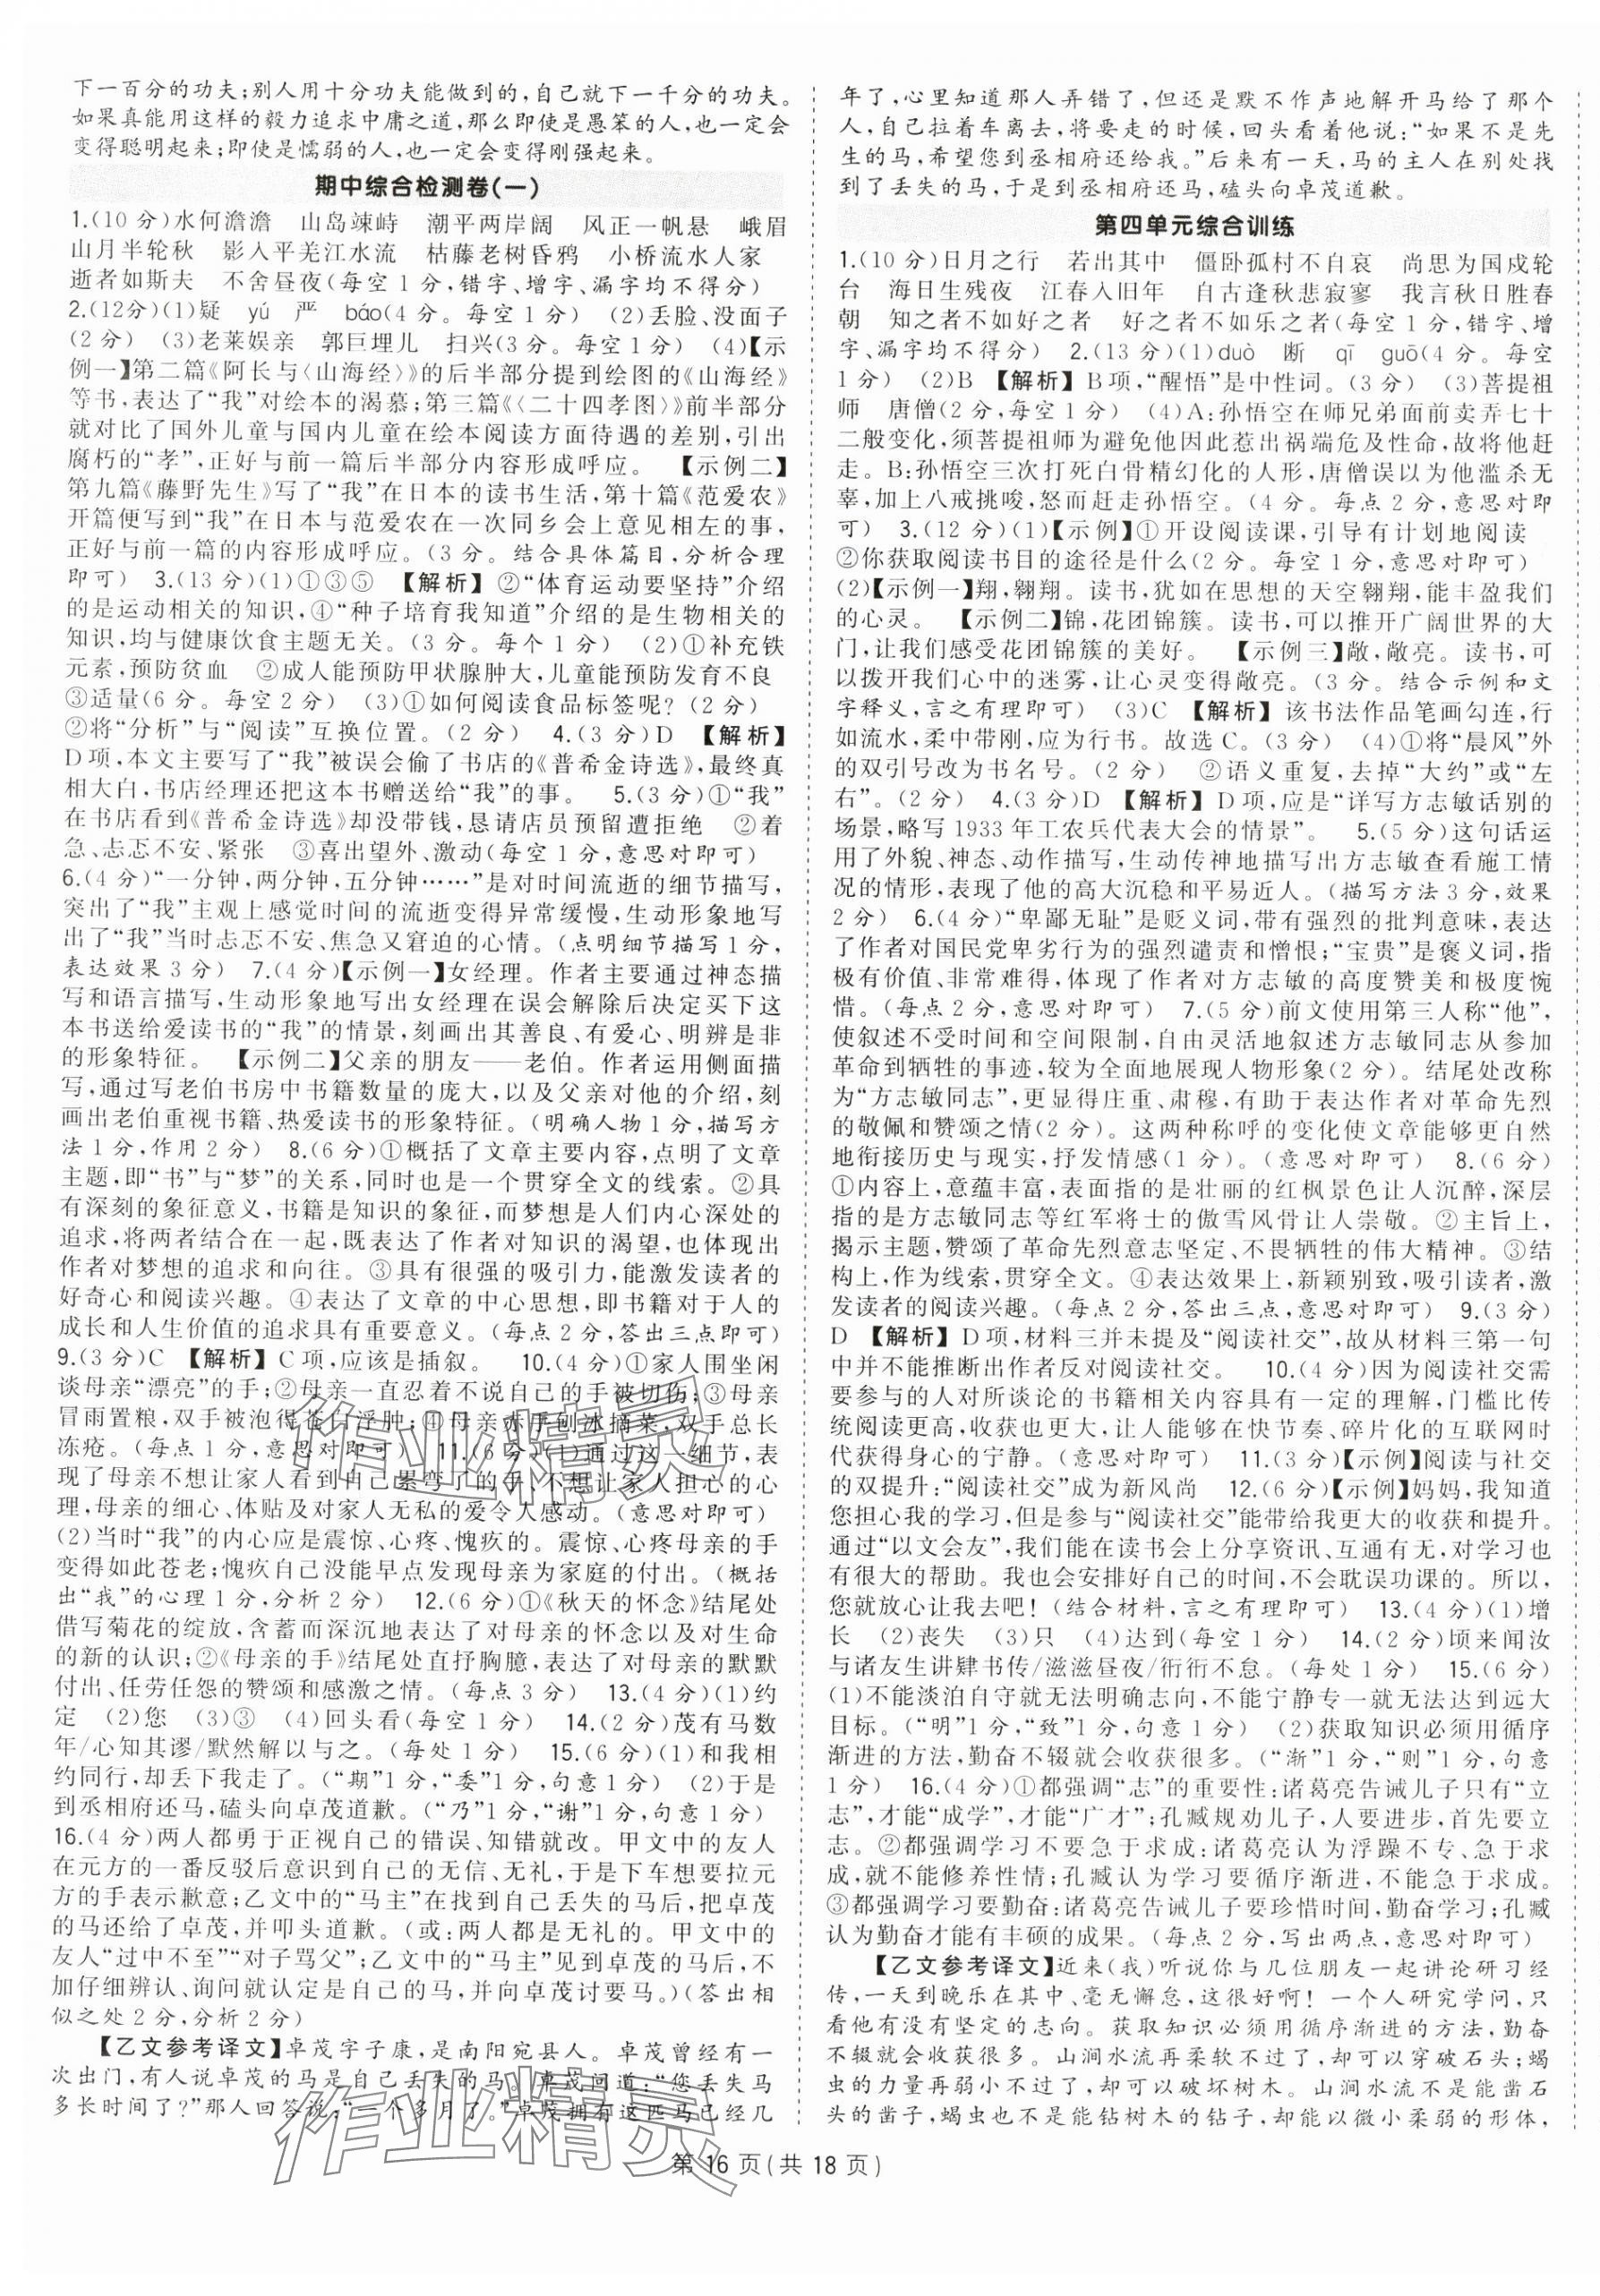 下一百分的功夫;别人用十分功夫能做到的,自己就下一千分的功夫。
如果真能用这样的毅力追求中庸之道,那么即使是愚笨的人,也一定会
变得聪明起来;即使是懦弱的人,也一定会变得刚强起来。
期中综合检测卷(一)
1.(10分)水何澹澹 山岛竦峙 潮平两岸阔 风正一帆悬 峨眉
山月半轮秋 影入平羌江水流 枯藤老树昏鸦 小桥流水人家
逝者如斯夫 不舍昼夜(每空1分,错字、增字、漏字均不得分)
2.(12分)(1)疑 yú 严 báo(4分。每空1分) (2)丢脸、没面子
(2分) (3)老莱娱亲 郭巨埋儿 扫兴(3分。每空1分) (4)【示
例一】第二篇《阿长与〈山海经〉》的后半部分提到绘图的《山海经》
等书,表达了“我”对绘本的渴慕;第三篇《〈二十四孝图〉》前半部分
就对比了国外儿童与国内儿童在绘本阅读方面待遇的差别,引出
腐朽的“孝”,正好与前一篇后半部分内容形成呼应。 【示例二】
第九篇《藤野先生》写了“我”在日本的读书生活,第十篇《范爱农》
开篇便写到“我”在日本与范爱农在一次同乡会上意见相左的事,
正好与前一篇的内容形成呼应。(3分。结合具体篇目,分析合理
即可) 3.(13分)(1)①③⑤ 【解析】②“体育运动要坚持”介绍
的是运动相关的知识,④“种子培育我知道”介绍的是生物相关的
知识,均与健康饮食主题无关。(3分。每个1分) (2)①补充铁
元素,预防贫血 ②成人能预防甲状腺肿大,儿童能预防发育不良
③适量(6分。每空2分) (3)①如何阅读食品标签呢?(2分)
②将“分析”与“阅读”互换位置。(2分) 4.(3分)D 【解析】
D项,本文主要写了“我”被误会偷了书店的《普希金诗选》,最终真
相大白,书店经理还把这本书赠送给“我”的事。 5.(3分)①“我”
在书店看到《普希金诗选》却没带钱,恳请店员预留遭拒绝 ②着
急、忐忑不安、紧张 ③喜出望外、激动(每空1分,意思对即可)
6.(4分)“一分钟,两分钟,五分钟……”是对时间流逝的细节描写,
突出了“我”主观上感觉时间的流逝变得异常缓慢,生动形象地写
出了“我”当时忐忑不安、焦急又窘迫的心情。(点明细节描写1分,
表达效果3分) 7.(4分)【示例一】女经理。作者主要通过神态描
写和语言描写,生动形象地写出女经理在误会解除后决定买下这
本书送给爱读书的“我”的情景,刻画出其善良、有爱心、明辨是非
的形象特征。 【示例二】父亲的朋友——老伯。作者运用侧面描
写,通过写老伯书房中书籍数量的庞大,以及父亲对他的介绍,刻
画出老伯重视书籍、热爱读书的形象特征。(明确人物1分,描写方
法1分,作用2分) 8.(6分)①概括了文章主要内容,点明了文章
主题,即“书”与“梦”的关系,同时也是一个贯穿全文的线索。②具
有深刻的象征意义,书籍是知识的象征,而梦想是人们内心深处的
追求,将两者结合在一起,既表达了作者对知识的渴望,也体现出
作者对梦想的追求和向往。③具有很强的吸引力,能激发读者的
好奇心和阅读兴趣。④表达了文章的中心思想,即书籍对于人的
成长和人生价值的追求具有重要意义。(每点2分,答出三点即可)
9.(3分)C 【解析】C项,应该是插叙。 10.(4分)①家人围坐闲
谈母亲“漂亮”的手;②母亲一直忍着不说自己的手被切伤;③母亲
冒雨置粮,双手被泡得苍白浮肿;④母亲赤手刨冰摘菜,双手总长
冻疮。(每点1分,意思对即可) 11.(6分)(1)通过这一细节,表
现了母亲不想让家人看到自己累弯了的手,不想让家人担心的心
理,母亲的细心、体贴及对家人无私的爱令人感动。(意思对即可)
(2)当时“我”的内心应是震惊、心疼、愧疚的。震惊、心疼母亲的手
变得如此苍老;愧疚自己没能早点发现母亲为家庭的付出。(概括
出“我”的心理1分,分析2分) 12.(6分)①《秋天的怀念》结尾处
借写菊花的绽放,含蓄而深沉地表达了对母亲的怀念以及对生命
的新的认识;②《母亲的手》结尾处直抒胸臆,表达了对母亲的默默
付出、任劳任怨的赞颂和感激之情。(每点3分) 13.(4分)(1)约
定 (2)您 (3)③ (4)回头看(每空1分) 14.(2分)茂有马数
年/心知其谬/默然解以与之。(每处1分) 15.(6分)(1)和我相
约同行,却丢下我走了。(“期”1分,“委”1分,句意1分) (2)于是
到丞相府还马,磕头向卓茂道歉。(“乃”1分,“谢”1分,句意1分)
16.(4分)两人都勇于正视自己的错误、知错就改。甲文中的友人
在元方的一番反驳后意识到自己的无信、无礼,于是下车想要拉元
方的手表示歉意;乙文中的“马主”在找到自己丢失的马后,把卓茂
的马还给了卓茂,并叩头道歉。(或:两人都是无礼的。甲文中的
友人“过中不至”“对子骂父”;乙文中的“马主”见到卓茂的马后,不
加仔细辨认、询问就认定是自己的马,并向卓茂讨要马。)(答出相
似之处2分,分析2分)
【乙文参考译文】卓茂字子康,是南阳宛县人。卓茂曾经有一
次出门,有人说卓茂的马是自己丢失的马。卓茂问道:“您丢失马
多长时间了?”那人回答说:“一个多月了。”卓茂拥有这匹马已经几
年了,心里知道那人弄错了,但还是默不作声地解开马给了那个
人,自己拉着车离去,将要走的时候,回头看着他说:“如果不是先
生的马,希望您到丞相府还给我。”后来有一天,马的主人在别处找
到了丢失的马,于是到丞相府还马,磕头向卓茂道歉。
第四单元综合训练
1.(10分)日月之行 若出其中 僵卧孤村不自哀 尚思为国戍轮
台 海日生残夜 江春入旧年 自古逢秋悲寂寥 我言秋日胜春
朝 知之者不如好之者 好之者不如乐之者(每空1分,错字、增
字、漏字均不得分) 2.(13分)(1)duò 断 qī guō(4分。每空
1分) (2)B 【解析】B项,“醒悟”是中性词。(3分) (3)菩提祖
师 唐僧(2分,每空1分) (4)A:孙悟空在师兄弟面前卖弄七十
二般变化,须菩提祖师为避免他因此惹出祸端危及性命,故将他赶
走。B:孙悟空三次打死白骨精幻化的人形,唐僧误以为他滥杀无
辜,加上八戒挑唆,怒而赶走孙悟空。(4分。每点2分,意思对即
可) 3.(12分)(1)【示例】①开设阅读课,引导有计划地阅读
②你获取阅读书目的途径是什么(2分。每空1分,意思对即可)
(2)【示例一】翔,翱翔。读书,犹如在思想的天空翱翔,能丰盈我们
的心灵。 【示例二】锦,花团锦簇。读书,可以推开广阔世界的大
门,让我们感受花团锦簇的美好。 【示例三】敞,敞亮。读书,可
以拨开我们心中的迷雾,让心灵变得敞亮。(3分。结合示例和文
字释义,言之有理即可) (3)C 【解析】该书法作品笔画勾连,行
如流水,柔中带刚,应为行书。故选C。(3分) (4)①将“晨风”外
的双引号改为书名号。(2分) ②语义重复,去掉“大约”或“左
右”。(2分) 4.(3分)D 【解析】D项,应是“详写方志敏话别的
场景,略写1933年工农兵代表大会的情景”。 5.(5分)这句话运
用了外貌、神态、动作描写,生动传神地描写出方志敏查看施工情
况的情形,表现了他的高大沉稳和平易近人。(描写方法3分,效果
2分) 6.(4分)“卑鄙无耻”是贬义词,带有强烈的批判意味,表达
了作者对国民党卑劣行为的强烈谴责和憎恨;“宝贵”是褒义词,指
极有价值、非常难得,体现了作者对方志敏的高度赞美和极度惋
惜。(每点2分,意思对即可) 7.(5分)前文使用第三人称“他”,
使叙述不受时间和空间限制,自由灵活地叙述方志敏同志从参加
革命到牺牲的事迹,较为全面地展现人物形象(2分)。结尾处改称
为“方志敏同志”,更显得庄重、肃穆,有助于表达作者对革命先烈
的敬佩和赞颂之情(2分)。这两种称呼的变化使文章能够更自然
地衔接历史与现实,抒发情感(1分)。(意思对即可) 8.(6分)
①内容上,意蕴丰富,表面指的是壮丽的红枫景色让人沉醉,深层
指的是方志敏同志等红军将士的傲雪风骨让人崇敬。②主旨上,
揭示主题,赞颂了革命先烈意志坚定、不畏牺牲的伟大精神。③结
构上,作为线索,贯穿全文。④表达效果上,新颖别致,吸引读者,激
发读者的阅读兴趣。(每点2分,答出三点,意思对即可) 9.(3分)
D 【解析】D项,材料三并未提及“阅读社交”,故从材料三第一句
中并不能推断出作者反对阅读社交。 10.(4分)因为阅读社交需
要参与的人对所谈论的书籍相关内容具有一定的理解,门槛比传
统阅读更高,收获也更大,让人能够在快节奏、碎片化的互联网时
代获得身心的宁静。(意思对即可) 11.(3分)【示例】阅读与社交
的双提升:“阅读社交”成为新风尚 12.(6分)【示例】妈妈,我知道
您担心我的学习,但是参与“阅读社交”能带给我更大的收获和提升。
通过“以文会友”,我们能在读书会上分享资讯、互通有无,对学习也
有很大的帮助。我也会安排好自己的时间,不会耽误功课的。所以,
您就放心让我去吧!(结合材料,言之有理即可) 13.(4分)(1)增
长 (2)丧失 (3)只 (4)达到(每空1分) 14.(2分)顷来闻汝
与诸友生讲肄书传/滋滋昼夜/衎衎不怠。(每处1分) 15.(6分)
(1)不能淡泊自守就无法明确志向,不能宁静专一就无法达到远大
目标。(“明”1分,“致”1分,句意1分) (2)获取知识必须用循序
渐进的方法,勤奋不辍就会收获很多。(“渐”1分,“则”1分,句意
1分) 16.(4分)①都强调“志”的重要性:诸葛亮告诫儿子只有“立
志”,才能“成学”,才能“广才”;孔臧规劝儿子,人要进步,首先要立
志。②都强调学习不要急于求成:诸葛亮认为浮躁不专、急于求
成,就不能修养性情;孔臧认为学习要循序渐进,不能急于求成。
③都强调学习要勤奋:诸葛亮告诫儿子要珍惜时间,勤奋学习;孔臧
认为勤奋才能有丰硕的成果。(每点2分,写出两点,意思对即可)
【乙文参考译文】近来(我)听说你与几位朋友一起讲论研习经
传,一天到晚乐在其中、毫无懈怠,这很好啊!一个人研究学问,只
看他有没有坚定的志向。获取知识必须用循序渐进的方法,勤奋
不辍就会收获很多。山涧水流再柔软不过了,却可以穿破石头;蝎
虫的力量再弱小不过了,却可以破坏树木。山涧水流不是能凿石
头的凿子,蝎虫也不是能钻树木的钻子,却能以微小柔弱的形体,
第16页(共18页)
作业精灵
作业精灵